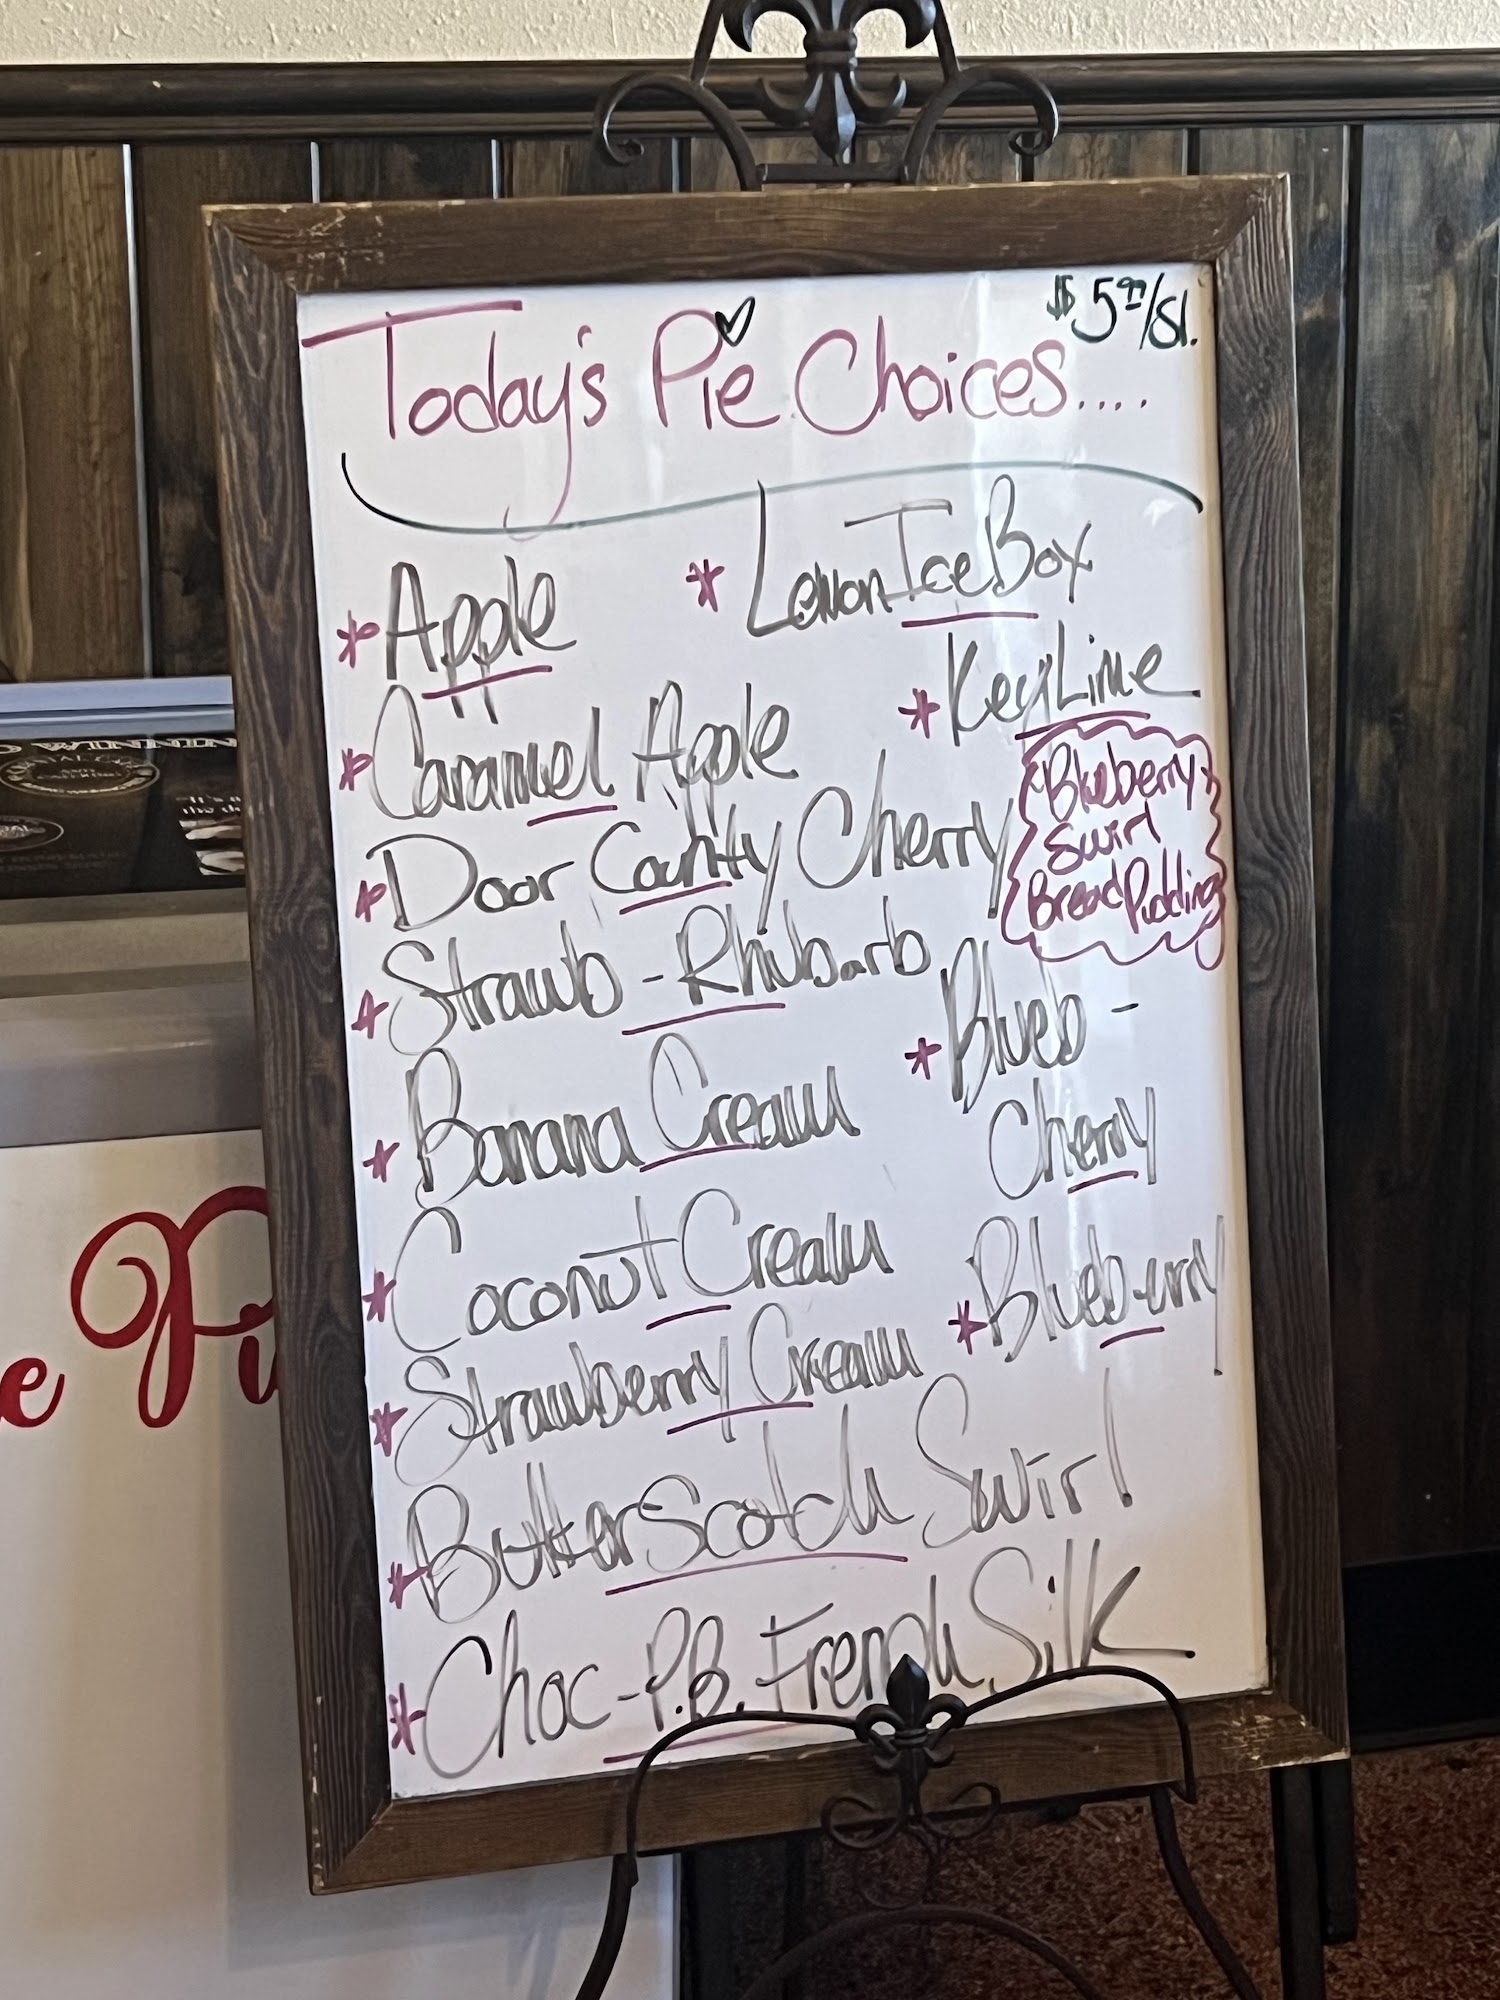 $5.99/Sl.
Today's Pie Choices....
* Apple
* Caramel Apple
* Door County Cherry
* Strawb - Rhubarb
* Banana Cream
* Coconut Cream
* Strawberry Cream
* Butterscotch Swirl
* Choc - P.B. French Silk
* Lemon Ice Box
* Key Lime
Blueberry
Swirl
Bread Pudding
* Blueb -
Cherry
* Blueberry
WINNIN